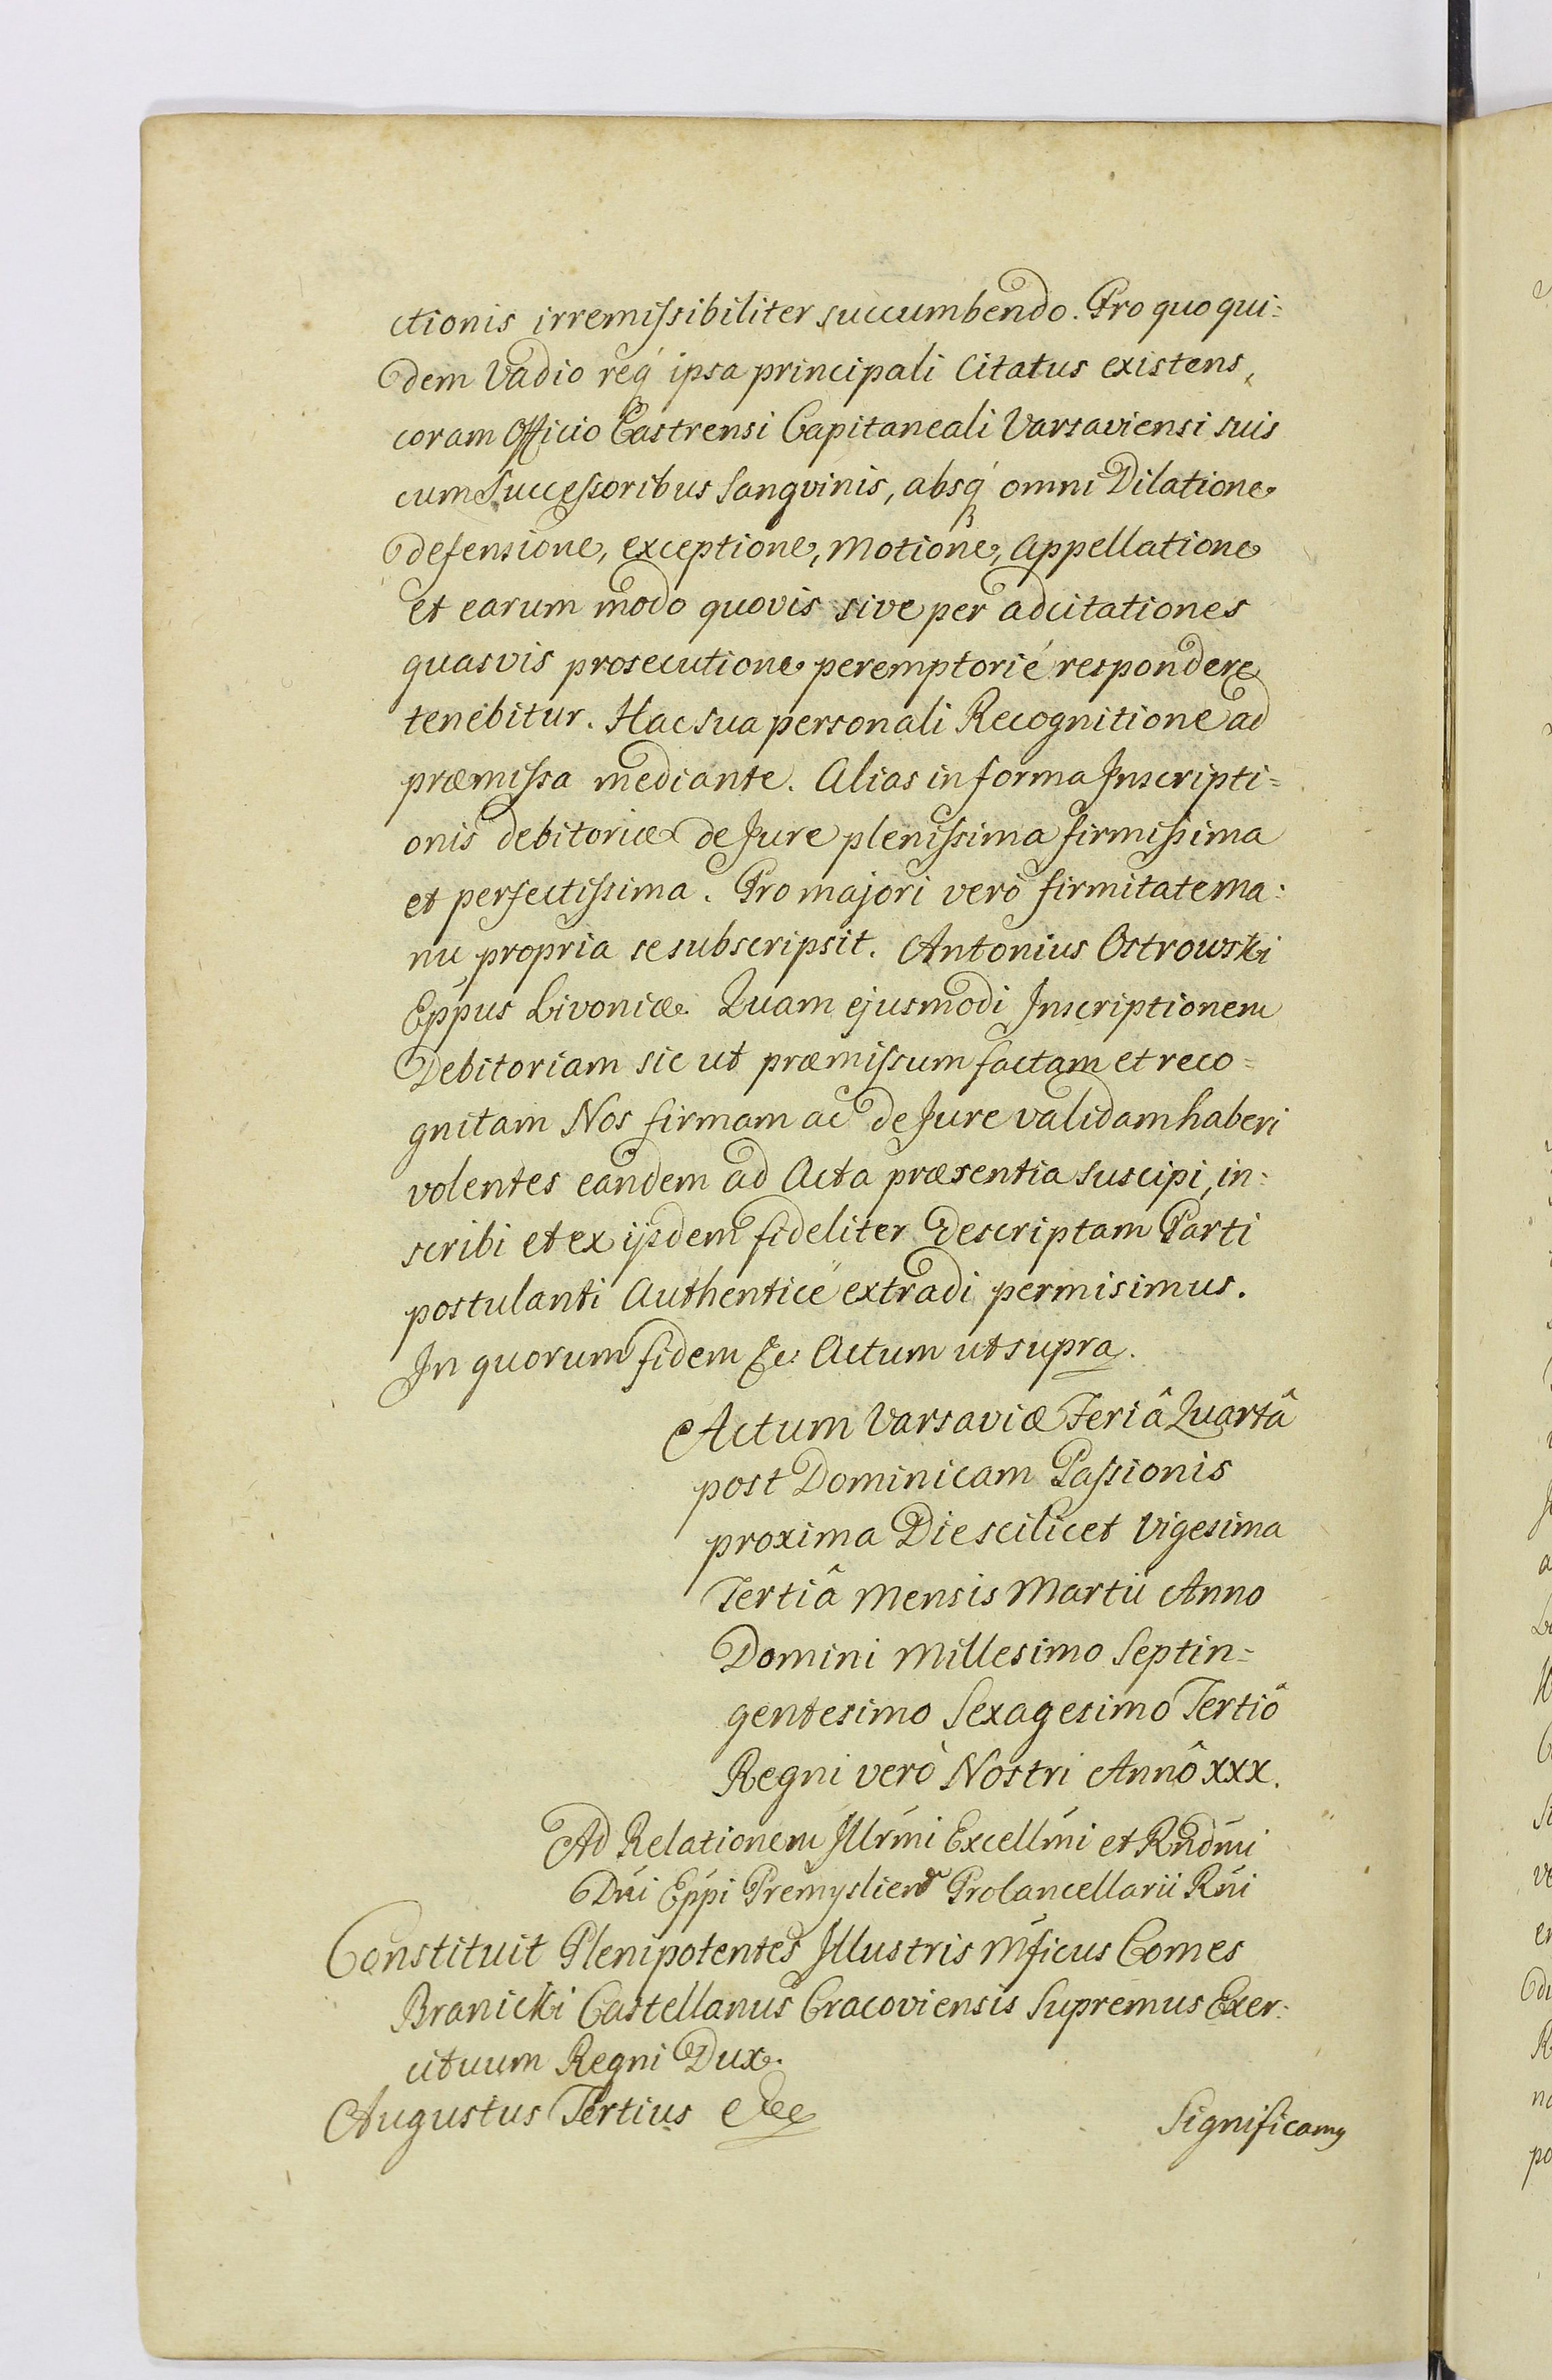 ctionis irremissibiliter succumbendo. Pro quo qui=
dem Vadio reqꝫ ipsa principali Citatus existens,
coram Officio Castrensi Capitaneali Varsaviensi suis
cum Successoribus Sangvinis, absqꝫ omni Dilatione
defensione, exceptione, Motione, Appellatione
et earum modo quovis sive per adcitationes
quasvis prosecutione peremptorié respondere
tenebitur. Hac sua personali Recognitione ad
præmissa mediante. Alias in forma Inscripti=
onis debitoriæ de Jure plenissima firmissima
et perfectissima. Pro majori verò firmitate ma=
nu propria se subscripsit. Antonius Ostrowski
Eppus Livoniæ. Quam ejusmodi Inscriptionem
Debitoriam sic ut præmissum factam et reco=
gnitam Nos firmam ac de Jure validam haberi
volentes eandem ad Acta præsentia suscipi, in=
scribi et ex ijsdem fideliter descriptam Parti
postulanti Authenticè extradi permisimus.
In quorum fidem &c: Actum ut supra.
Actum Varsaviæ Feriâ Quartâ
post Dominicam Passionis
proxima Die scilicet Vigesima
Tertiâ Mensis Martii Anno
Domini Millesimo Septin=
gentesimo Sexagesimo Tertiô
Regni verò Nostri Annô XXX.
Ad Relationem Illrmi Excellmi et Rndmi
Dni Eppi Premyslien Procancellarii Rni
Constituit Plenipotentes Illustris Mficus Comes
Branicki Castellanus Cracoviensis Supremus Exer=
cituum Regni Dux.
Augustus Tertius &c
Significamꝰ